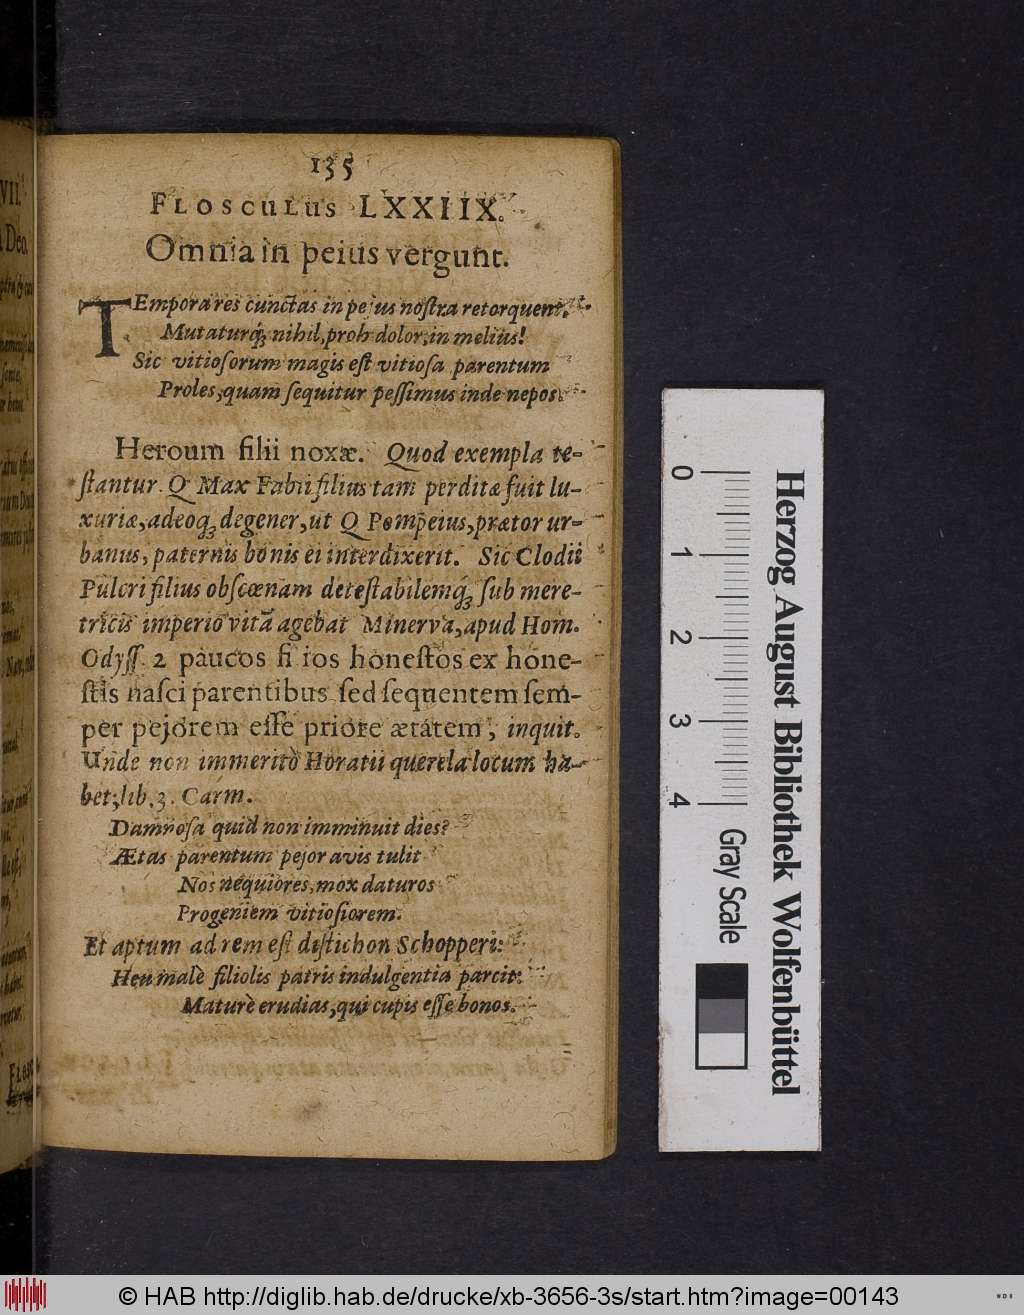 135
FLOSCULUS LXXIIX.
Omnia in peius vergunt.
TEmpora res cunctas in pejus nostra retorquent,
Mutaturq́; nihil, proh dolor, in melius!
Sic vitiosorum magis est vitiosa parentum
Proles, quam sequitur pessimus inde nepos.
Heroum filii noxæ. Quod exempla te-
stantur. Q Max Fabii filius tam perditæ fuit lu-
xuriæ, adeoq; degener, ut Q Pompeius, prætor ur-
banus, paternis bonis ei interdixerit. Sic Clodii
Pulcri filius obscœnam detestabilemq́; sub mere-
tricis imperio vitā agebat Minerva, apud Hom.
Odyss. 2 paucos fi ios honestos ex hone-
stis nasci parentibus sed sequentem sem-
per pejorem esse priore ætatem, inquit.
Unde non immeritò Horatii querela locum ha-
bet, lib. 3. Carm.
Damnosa quid non imminuit dies?
Ætas parentum pejor avis tulit
Nos nequiores, mox daturos
Progeniem vitiosiorem.
Et aptum ad rem est distichon Schopperi:
Heu malè filiolis patris indulgentia parcit:
Maturè erudias, qui cupis esse bonos.
VII.
Deo.
0
1
2
3
4
Gray Scale
Herzog August Bibliothek Wolfenbüttel
© HAB http://diglib.hab.de/drucke/xb-3656-3s/start.htm?image=00143